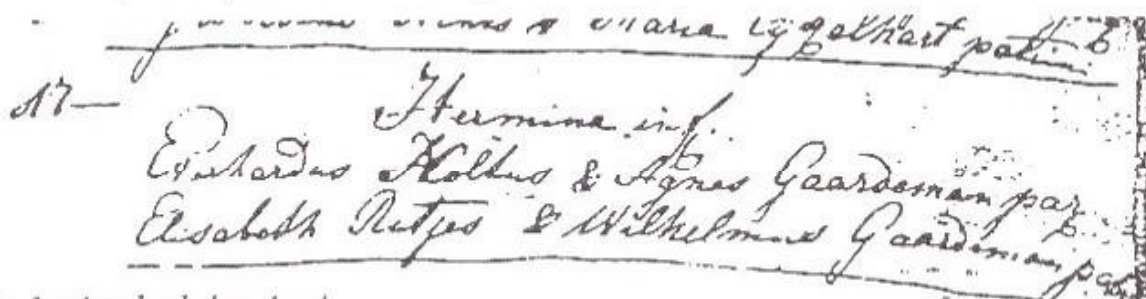 & Maria Eggelhart patrini
17 —
Hermina inf.
Everhardus Holtus & Agnes Gaardeman par
Elisabeth Rutjes & Wilhelmus Gaardeman pat